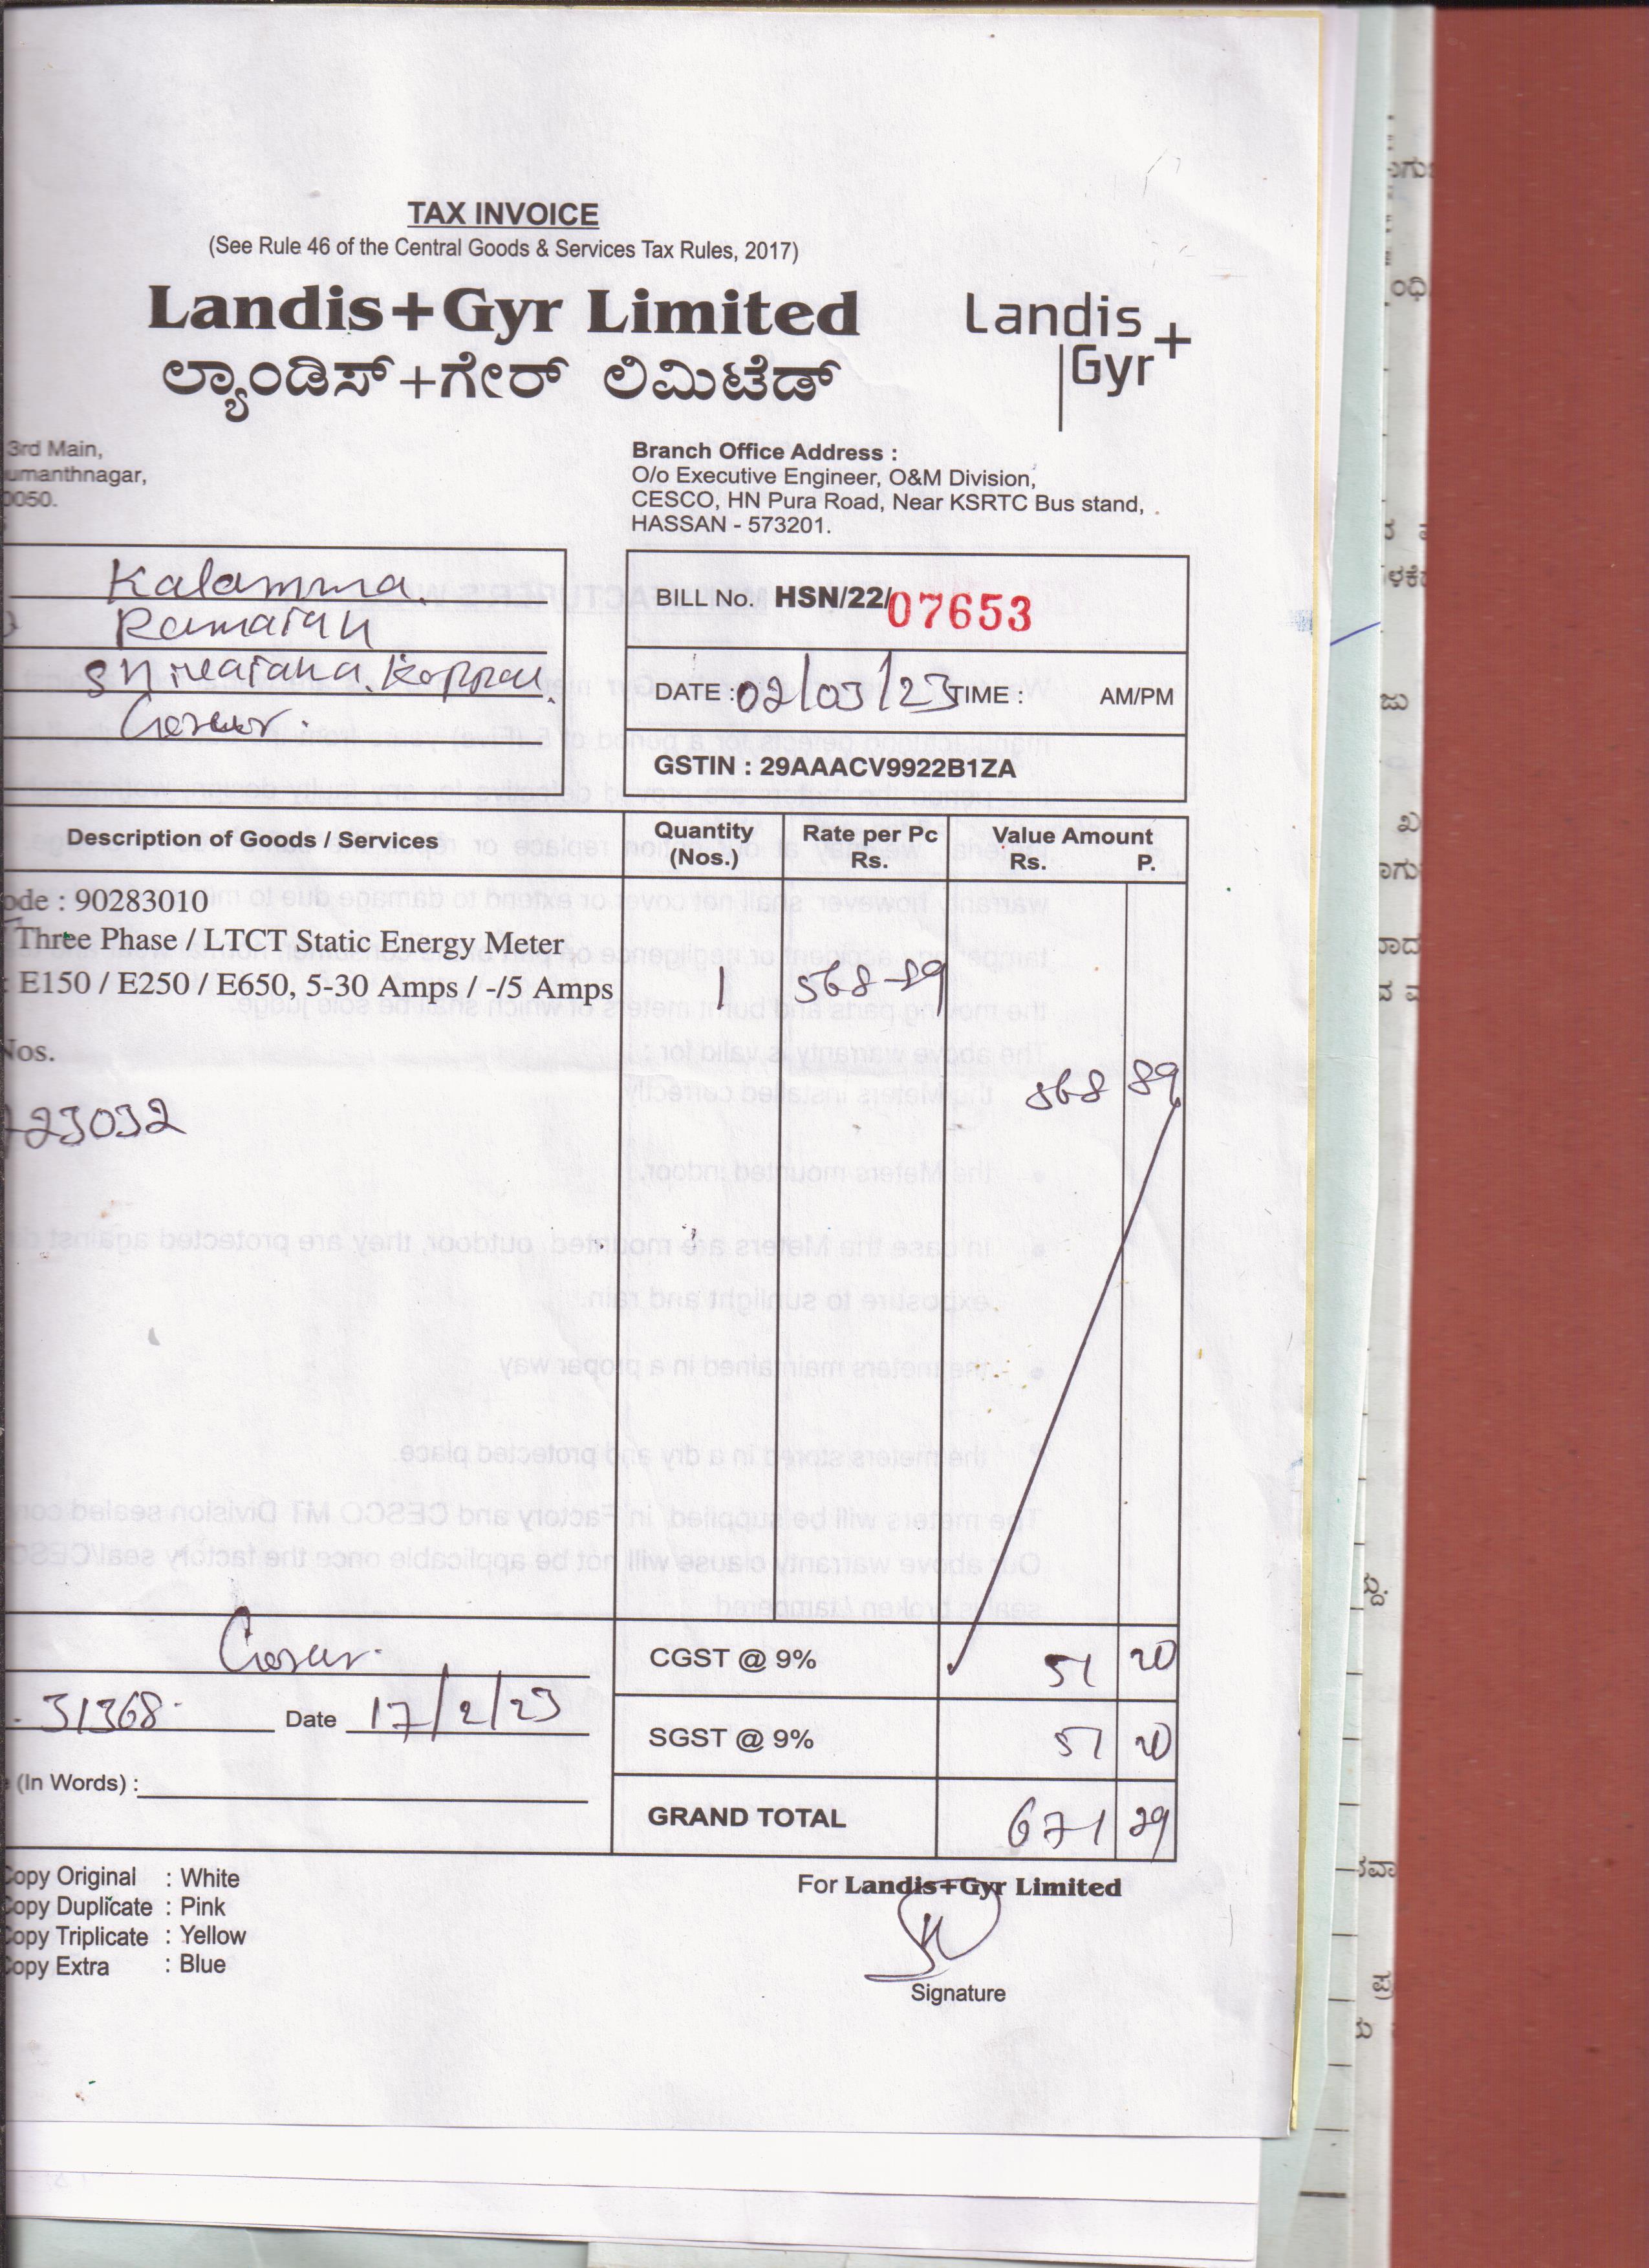 TAX INVOICE
(See Rule 46 of the Central Goods & Services Tax Rules, 2017)
Landis+Gyr Limited
Landis+
Gyr
ಲ್ಯಾಂಡಿಸ್+ಗೇರ್ ಲಿಮಿಟೆಡ್
3rd Main,
umanthnagar,
0050.
Branch Office Address :
O/o Executive Engineer, O&M Division,
CESCO, HN Pura Road, Near KSRTC Bus stand,
HASSAN - 573201.
Kalamma.
Ramaiah
Koppal
BILL No. HSN/22/07653
DATE : 02/03/23 TIME : AM/PM
GSTIN : 29AAACV9922B1ZA
Description of Goods / Services Quantity (Nos.) Rate per Pc Rs. Value Amount Rs. P.
ode : 90283010
Three Phase / LTCT Static Energy Meter
: E150 / E250 / E650, 5-30 Amps / -/5 Amps 1 568-89
Nos.
568 89
23032
CGST @ 9% 51 20
31368 Date 17/2/23
SGST @ 9% 51 20
(In Words) :
GRAND TOTAL 671 29
Copy Original : White
Copy Duplicate : Pink
Copy Triplicate : Yellow
Copy Extra : Blue
For Landis+Gyr Limited
Signature